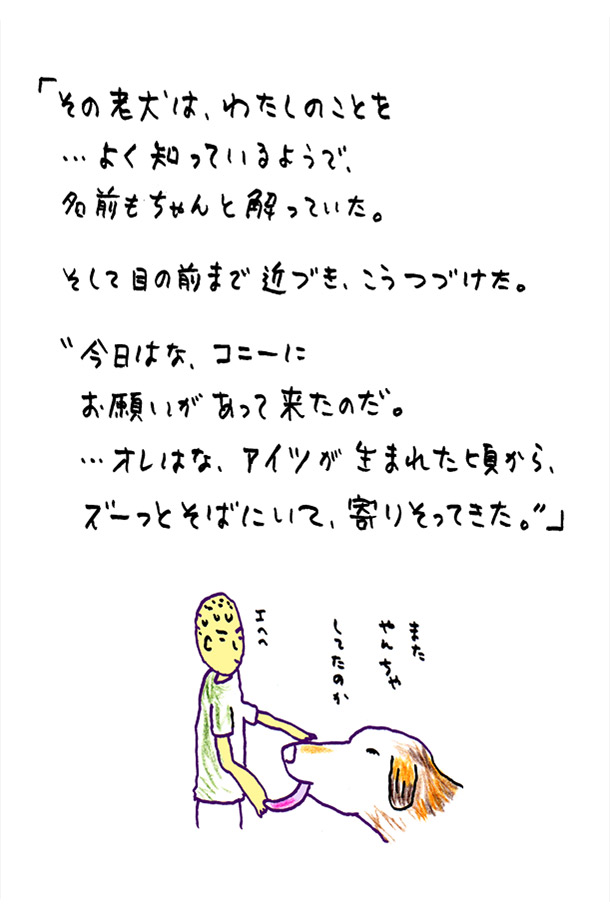 「その老犬は、わたしのことを
…よく知っているようで、
名前もちゃんと解っていた。
そして目の前まで近づき、こうつづけた。
〝今日はな、コニーに
お願いがあって来たのだ。
…オレはな、アイツが生まれた頃から、
ズーっとそばにいて、寄りそってきた。〟」
また
やんちゃ
してたのか
エヘヘ